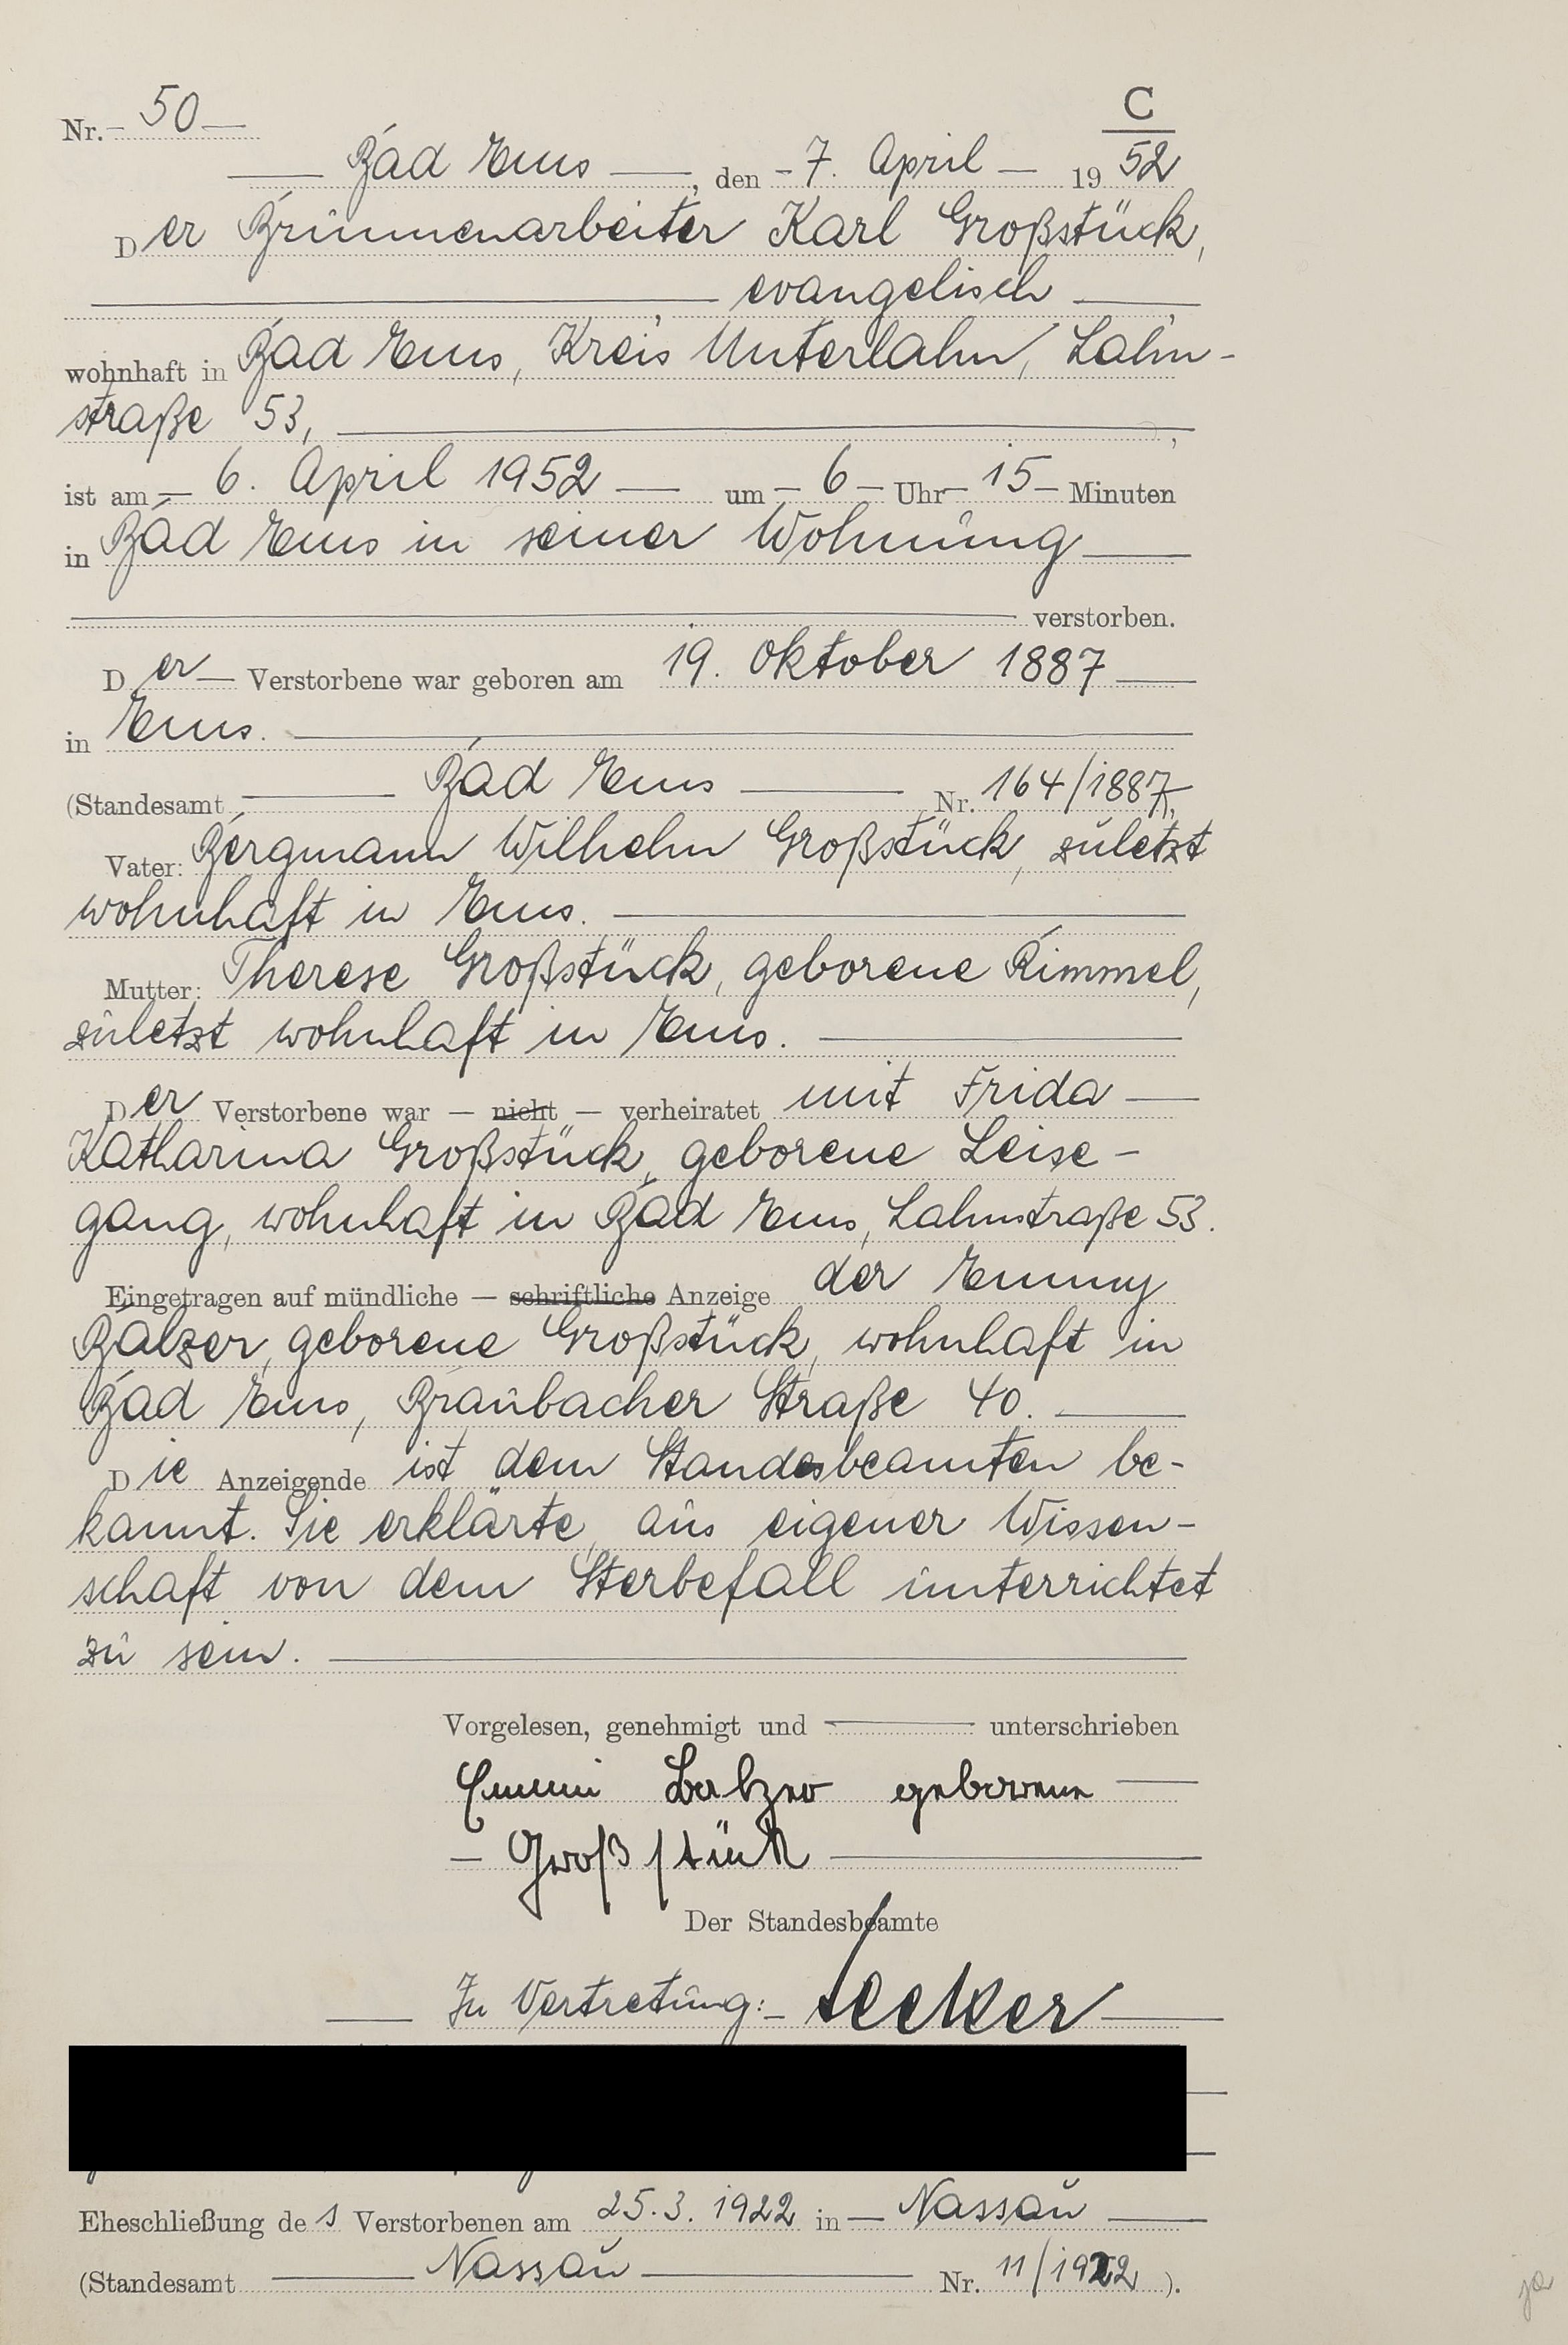 C
Nr. 50
Bad Ems, den 7. April 19 52
Der Brunnenarbeiter Karl Großstück,
evangelisch,
wohnhaft in Bad Ems, Kreis Unterlahn, Lahn-
straße 53,
ist am 6. April 1952 um 6 Uhr 15 Minuten
in Bad Ems in seiner Wohnung
verstorben.
Der Verstorbene war geboren am 19. Oktober 1887
in Ems.
(Standesamt Bad Ems Nr. 164/1887)
Vater: Bergmann Wilhelm Großstück, zuletzt
wohnhaft in Ems.
Mutter: Therese Großstück, geborene Rimmel,
zuletzt wohnhaft in Ems.
Der Verstorbene war — nicht — verheiratet mit Frida
Katharina Großstück, geborene Leise-
gang, wohnhaft in Bad Ems, Lahnstraße 53.
Eingetragen auf mündliche — schriftliche Anzeige der Emmy
Balzer, geborene Großstück, wohnhaft in
Bad Ems, Braubacher Straße 40.
Die Anzeigende ist dem Standesbeamten be-
kannt. Sie erklärte, aus eigener Wissen-
schaft von dem Sterbefall unterrichtet
zu sein.
Vorgelesen, genehmigt und unterschrieben
Emmi Balzer geborene
Großstück
Der Standesbeamte
In Vertretung:
Eheschließung des Verstorbenen am 25.3.1922 in Nassau
(Standesamt Nassau Nr. 11/1922).